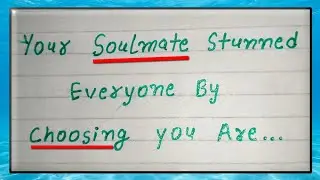 Your Soulmate Stunned
Everyone By
Choosing you Are...